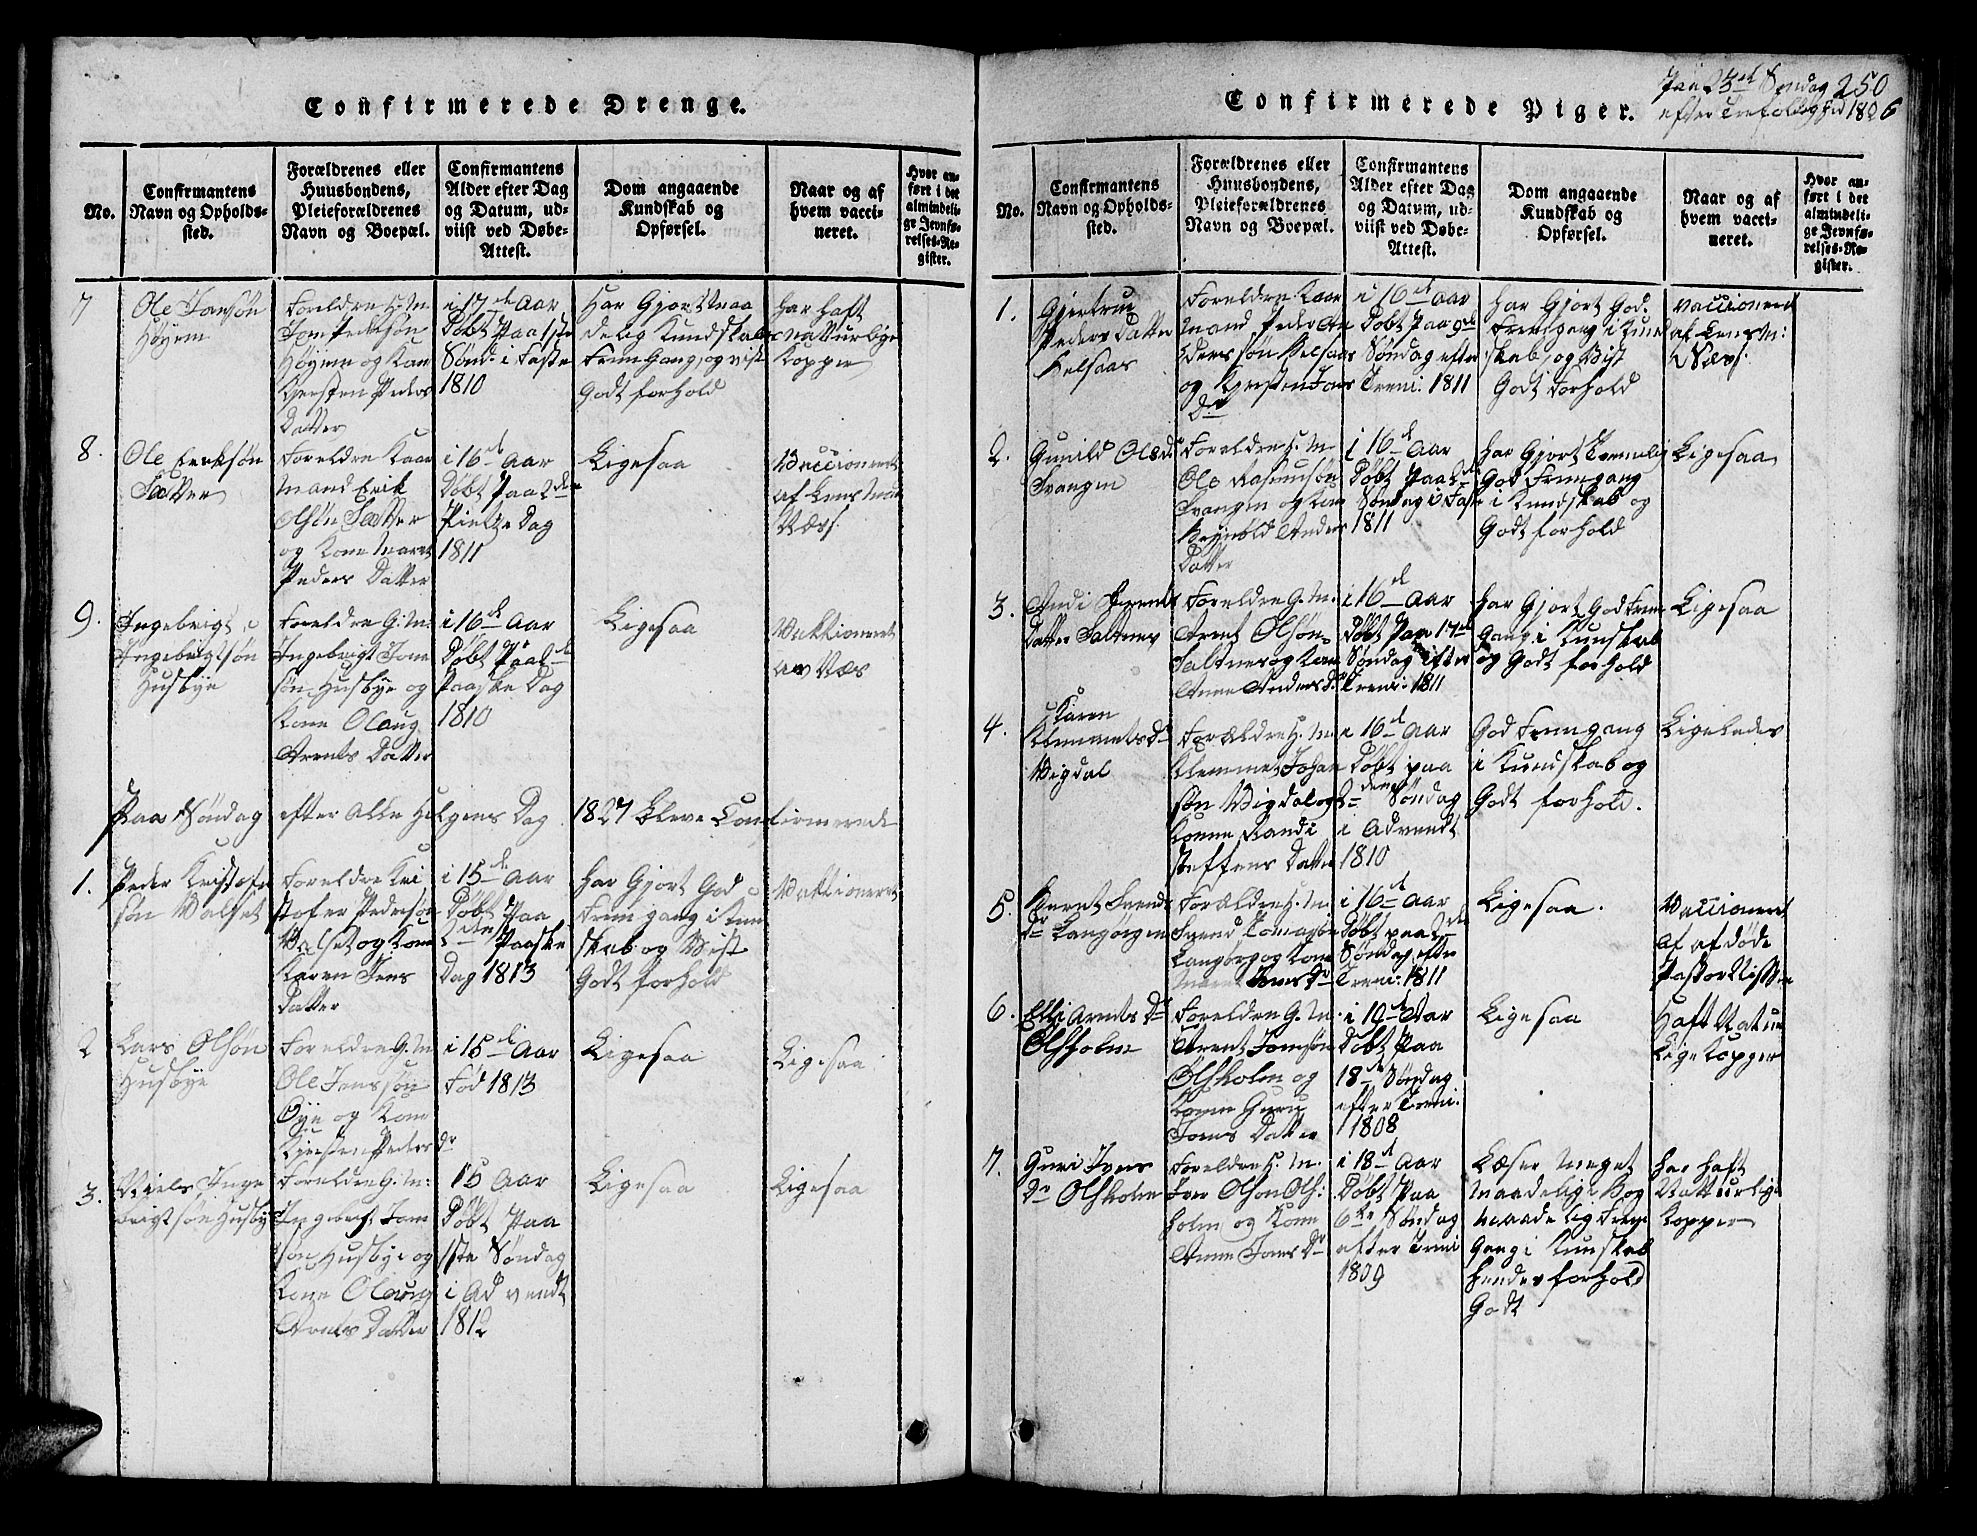 Confirmerede Drenge.
No.
Confirmantens
Navn og Opholds-
sted.
Forældrenes eller
Huusbondens,
Pleieforældrenes
Navn og Boepæl.
Confirmantens
Alder efter Dag
og Datum, ud-
viist ved Døbe-
Attest.
Dom angaaende
Kundskab og
Opførsel.
Naar og af
hvem vacci-
neret.
Hvor an-
ført i det
almindeli-
ge Jevnfø-
relses-Re-
gister.
7
Ole Jonsøn
Høyem
Foreldre H. M
Jon Pedersøn
Høyem og Kon
Kjersten Peders
Datter
i 17de Aar
Døbt Paa 1ste
Sønd. i Faste
1810
Har Gjort Maa
delig Kundskabs
Fremgang, og vist
Godt forhold
har haft
natturlige
Kopper
8.
Ole Eriksøn
Sætter
Foreldre Kaar
Mand Erik
Olsøn Sætter
og Kone Maret
Peders Datter
i 16de Aar
Døbt Paa 2den
Pintze Dag
1811
Ligesaa
Vaccioneret
af Lens Man
Næss
9.
Ingebrigt
Ingebrigtsøn
Husbye
Foreldre G. M:
Ingebrigt Jon
søn Husbye og
Kone Olaug
Arents Datter
i 16de Aar
Døbt Paa 2de
Paaske Dag
1810
Ligesaa
Vaktioneret
av Næs
Paa Søndag efter Alle Helgens Dag 1827 Bleve Confirmerede
1.
Peder Kristofer
søn Valset
Foreldre Kri
stofer Pedersøn
Valset og Kone
Karen Jens
Datter
i 15de Aar
Døbt Paa
2den Paaske
Dag 1813
Har Gjort God
Fremgang i Kun
skab og Vist
Godt forhold
Vaktioneret
2
Lars Olsøn
Husbye
Foreldre G. M
Ole Jonssøn
Øye og Kone
Kjersten Peders Dr
i 15de Aar
Fød 1813
Ligesaa
Ligesaa
3.
Niels Inge
brigtsøn Husby
Foreldre G. M:
Ingebrigt Jon
søn Husbye og
Kone Olaug
Arents Datter
15 Aar
Døbt Paa
1ste Søndag
i Advendt
1812
Ligesaa
Ligesaa
Confirmerede Piger.
Paa 23de Søndag 250
efter Trefoldighed 1826
No.
Confirmantens
Navn og Opholds-
sted.
Forældrenes eller
Huusbondens,
Pleieforældrenes
Navn og Boepæl.
Confirmantens
Alder efter Dag
og Datum, ud-
viist ved Døbe-
Attest.
Dom angaaende
Kundskab og
Opførsel.
Naar og af
hvem vacci-
neret.
Hvor an-
ført i det
almindeli-
ge Jevnfø-
relses-Re-
gister.
1.
Gjertru
Peders Datter
Kelsaas
Foreldre Kaar
Mand Peder An
derssøn Kelsaas
og Kjersten Jons
Dr
i 16de Aar
Døbt Paa 9de
Søndag efter
Treni: 1811
Har Gjort God
Fremgang i Kund
skab, og Vist
Godt Forhold
Vaccioneret
af Lens M:
Næss
2.
Gunild Olsdr
Svangen
Foreldre H. M
Ole Rasmusøn
Svangen og Kone
Reynold Anders
Datter
i 16de Aar
Døbt Paa 2de
Søndag i Faste
1811
har Gjort Temmelig
God Fremgang
i Kundskab og
Godt forhold
Ligesaa
3.
Andi Arents
Datter Saltnes
Foreldre G. M.
Arent Olsøn
Saltnes og Kone
Anne Anders Dr
i 16de Aar
Døbt Paa 17de
Søndag efter
Treni: 1811
Har Gjort God Frem
Gang i Kunskab
og Godt forhold
Ligesaa
4.
Karen
Klemmets Dr
Vigdal
Forældre H. M.
Klemmet Johan
søn Vigdal og
Konne Randi
Steffens Datter
i 16de Aar
Døbt paa
2den Søndag
i Advendt
1810
God Fremgang
i Kundskab og
Godt forhold.
Ligeledes
5.
Beret Svends
Dr Langørgen
Forældre H. M.
Svend Tomasøn
Langørg og Kone
Maret Jons Dr
i 16de Aar
Døbt paa 2den
Søndag efter
Treni: 1811
Ligesaa.
Vaccioneret
af afdøde
Pastor Nissen
6.
Elli Arnts Dr
Olsholm
Foreldre G. M.
Arent Jonsøn
Olsholm og
Konne Guru
Jons Datter
i 19de Aar
Døbt Paa
18de Søndag
efter Treni.
1808
Ligesaa
Haft Natur
Lige Kopper
7.
Guri Ivers
Dr Olsholm
Foreldre H. M.
Iver Olsøn Ols:
holm og Kone
Anne Jons Dr
i 18de Aar
Døbt Paa
6te Søndag
efter Treni
1809
Læser Meget
Maadelig i Bog
Maadelig Frem
Gang i Kunskab
hendes forhold
Godt
har haft
Natturlige
Kopper